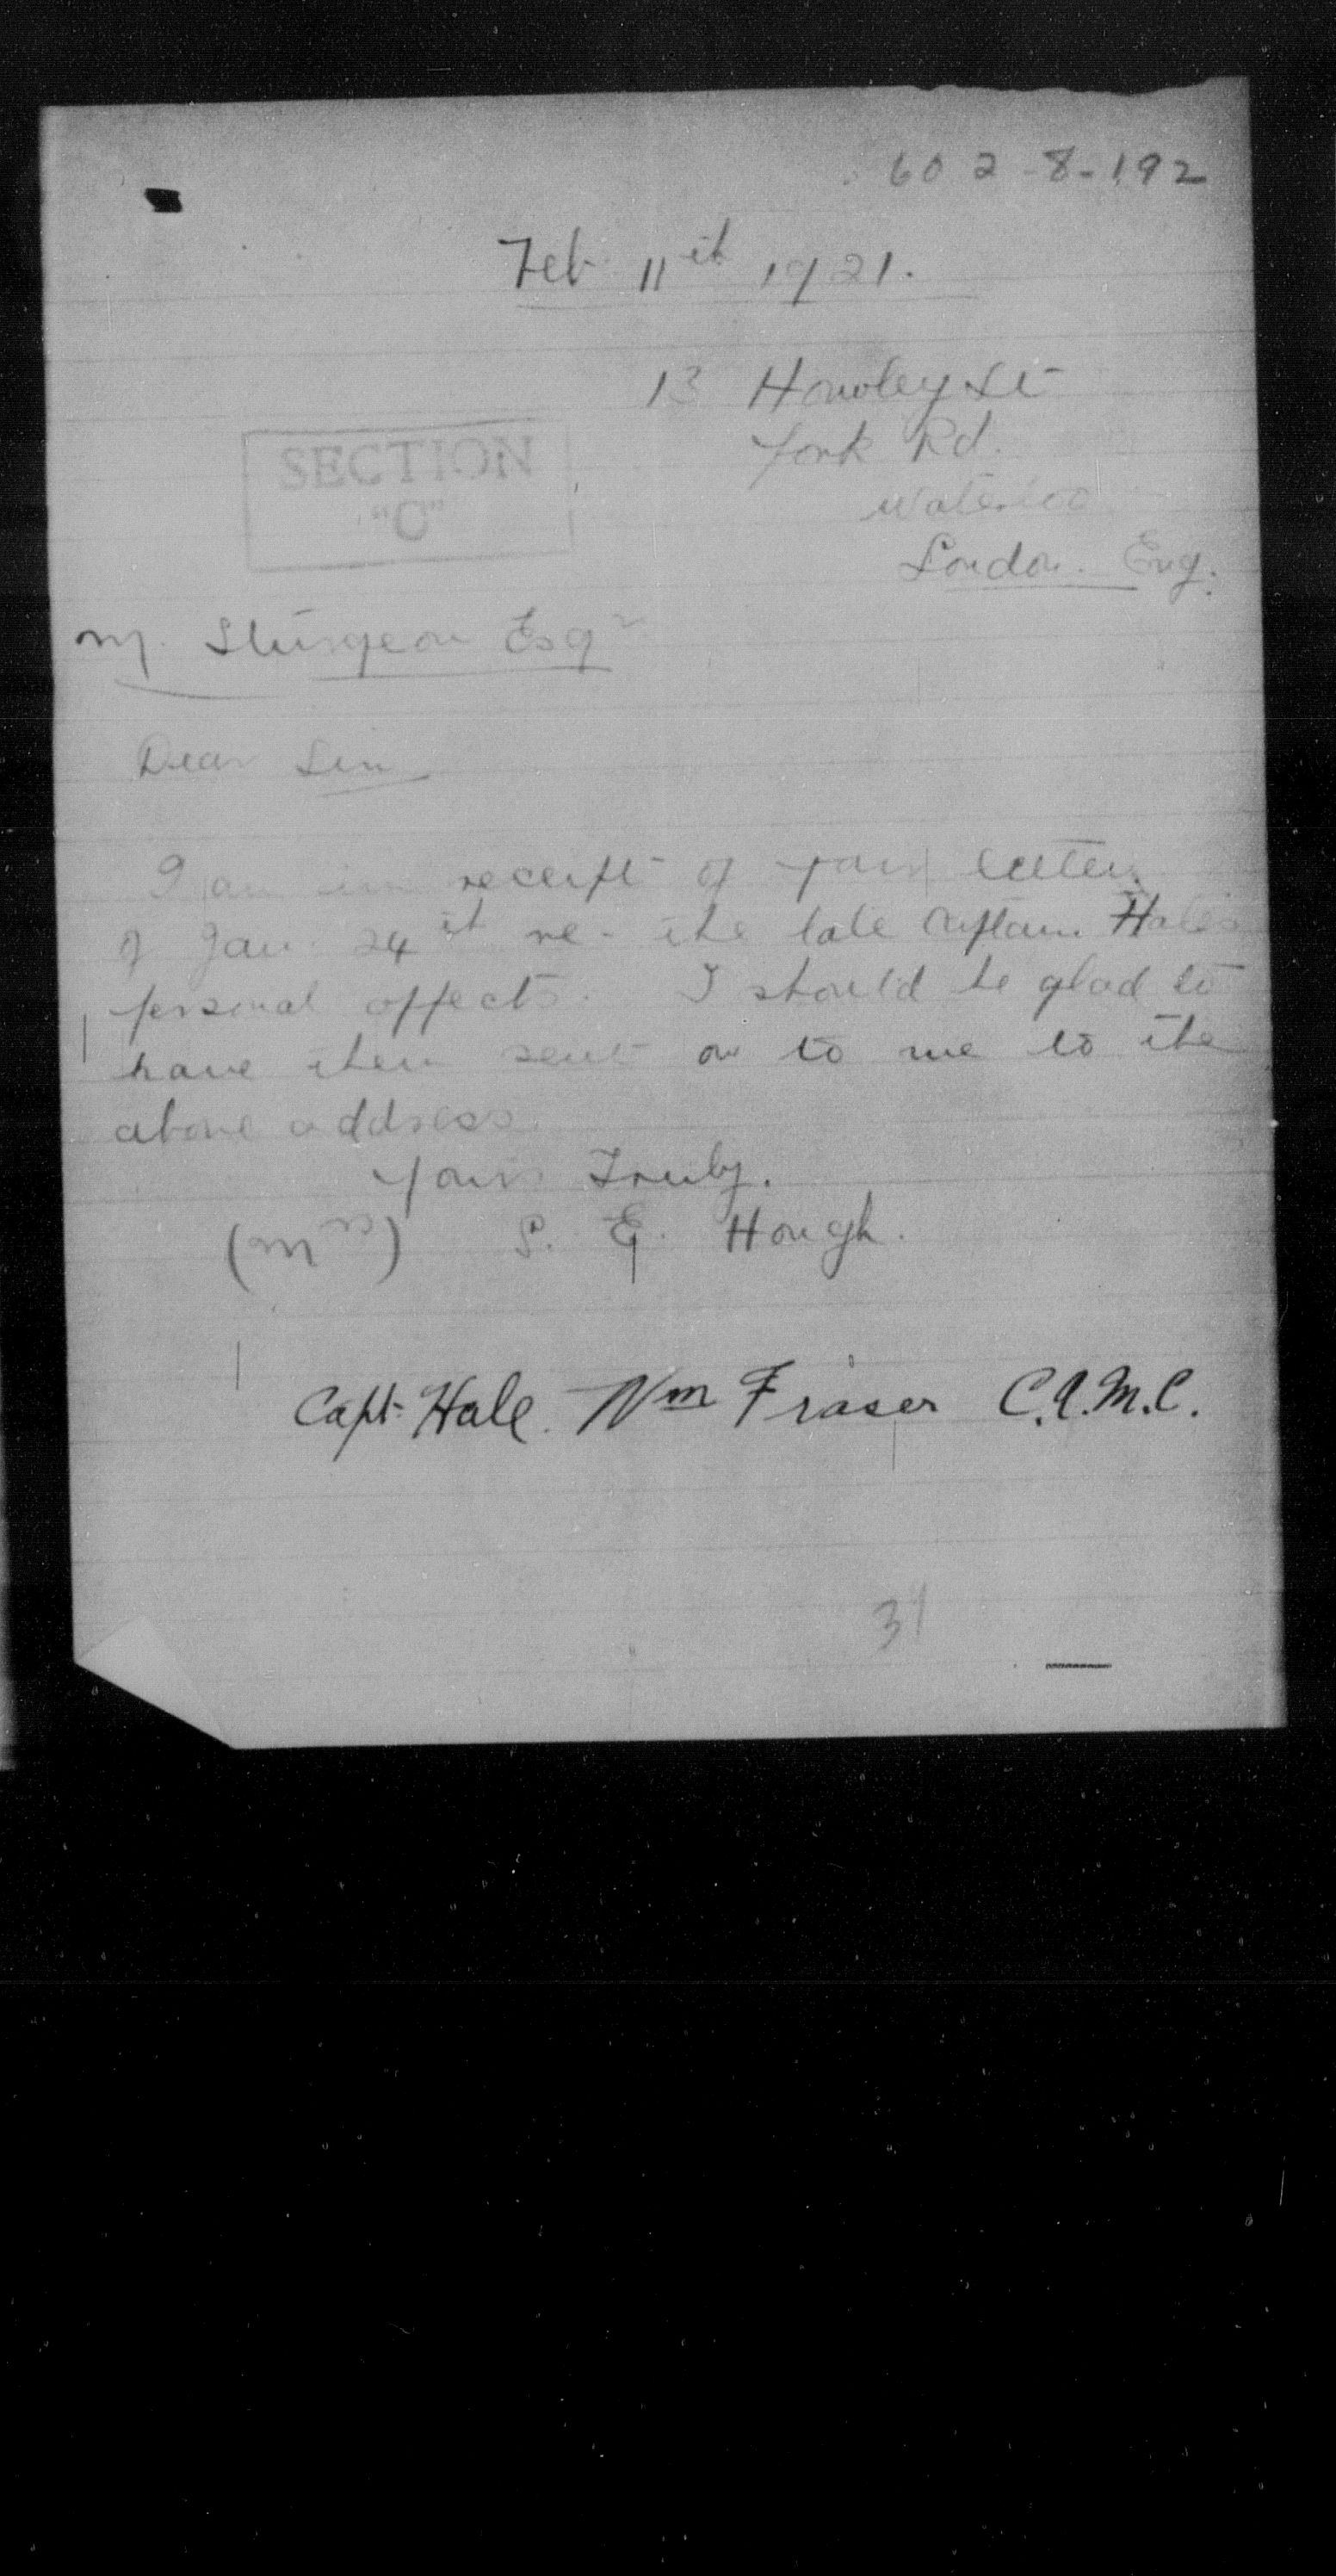 602-8-192
Feb 11th 1921.
13 Howley St
York Rd.
Waterloo
London. Eng.
SECTION
"C"
M. Sturgeon Esqr
Dear Sir
I am in receipt of your letter
of Jan. 24th re- the late Captain Hale's
personal effects. I should be glad to
have them sent on to me to the
above address.
Yours Truly.
(Mrs) S. E. Hough.
Capt. Hale. Wm Fraser C.A.M.C.
31